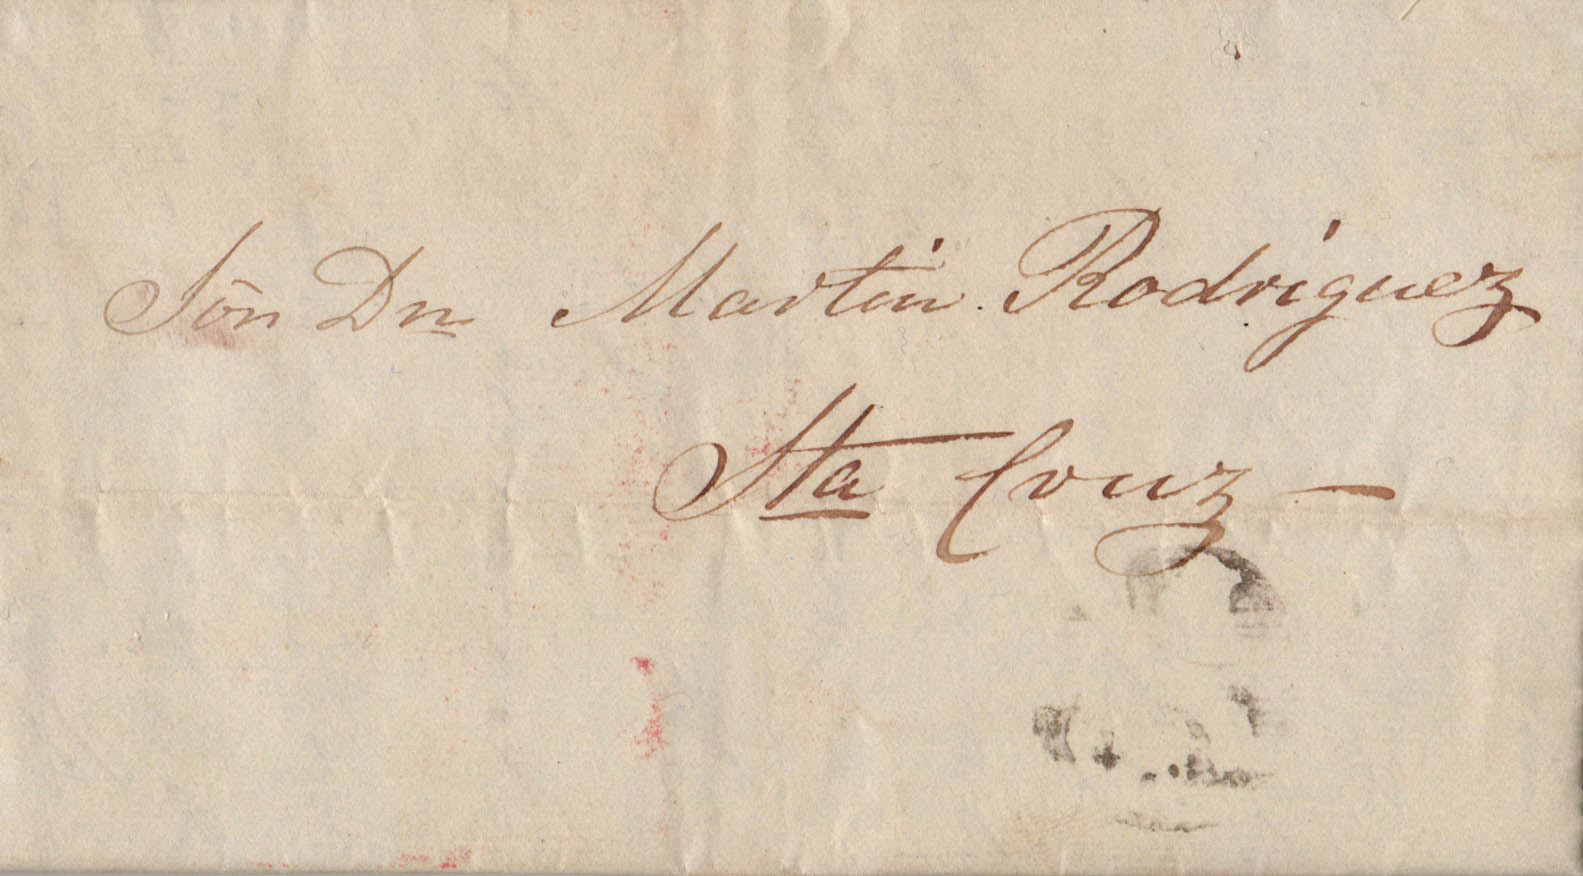 Sõn Dn Martin Rodriguez
Sta Cruz —